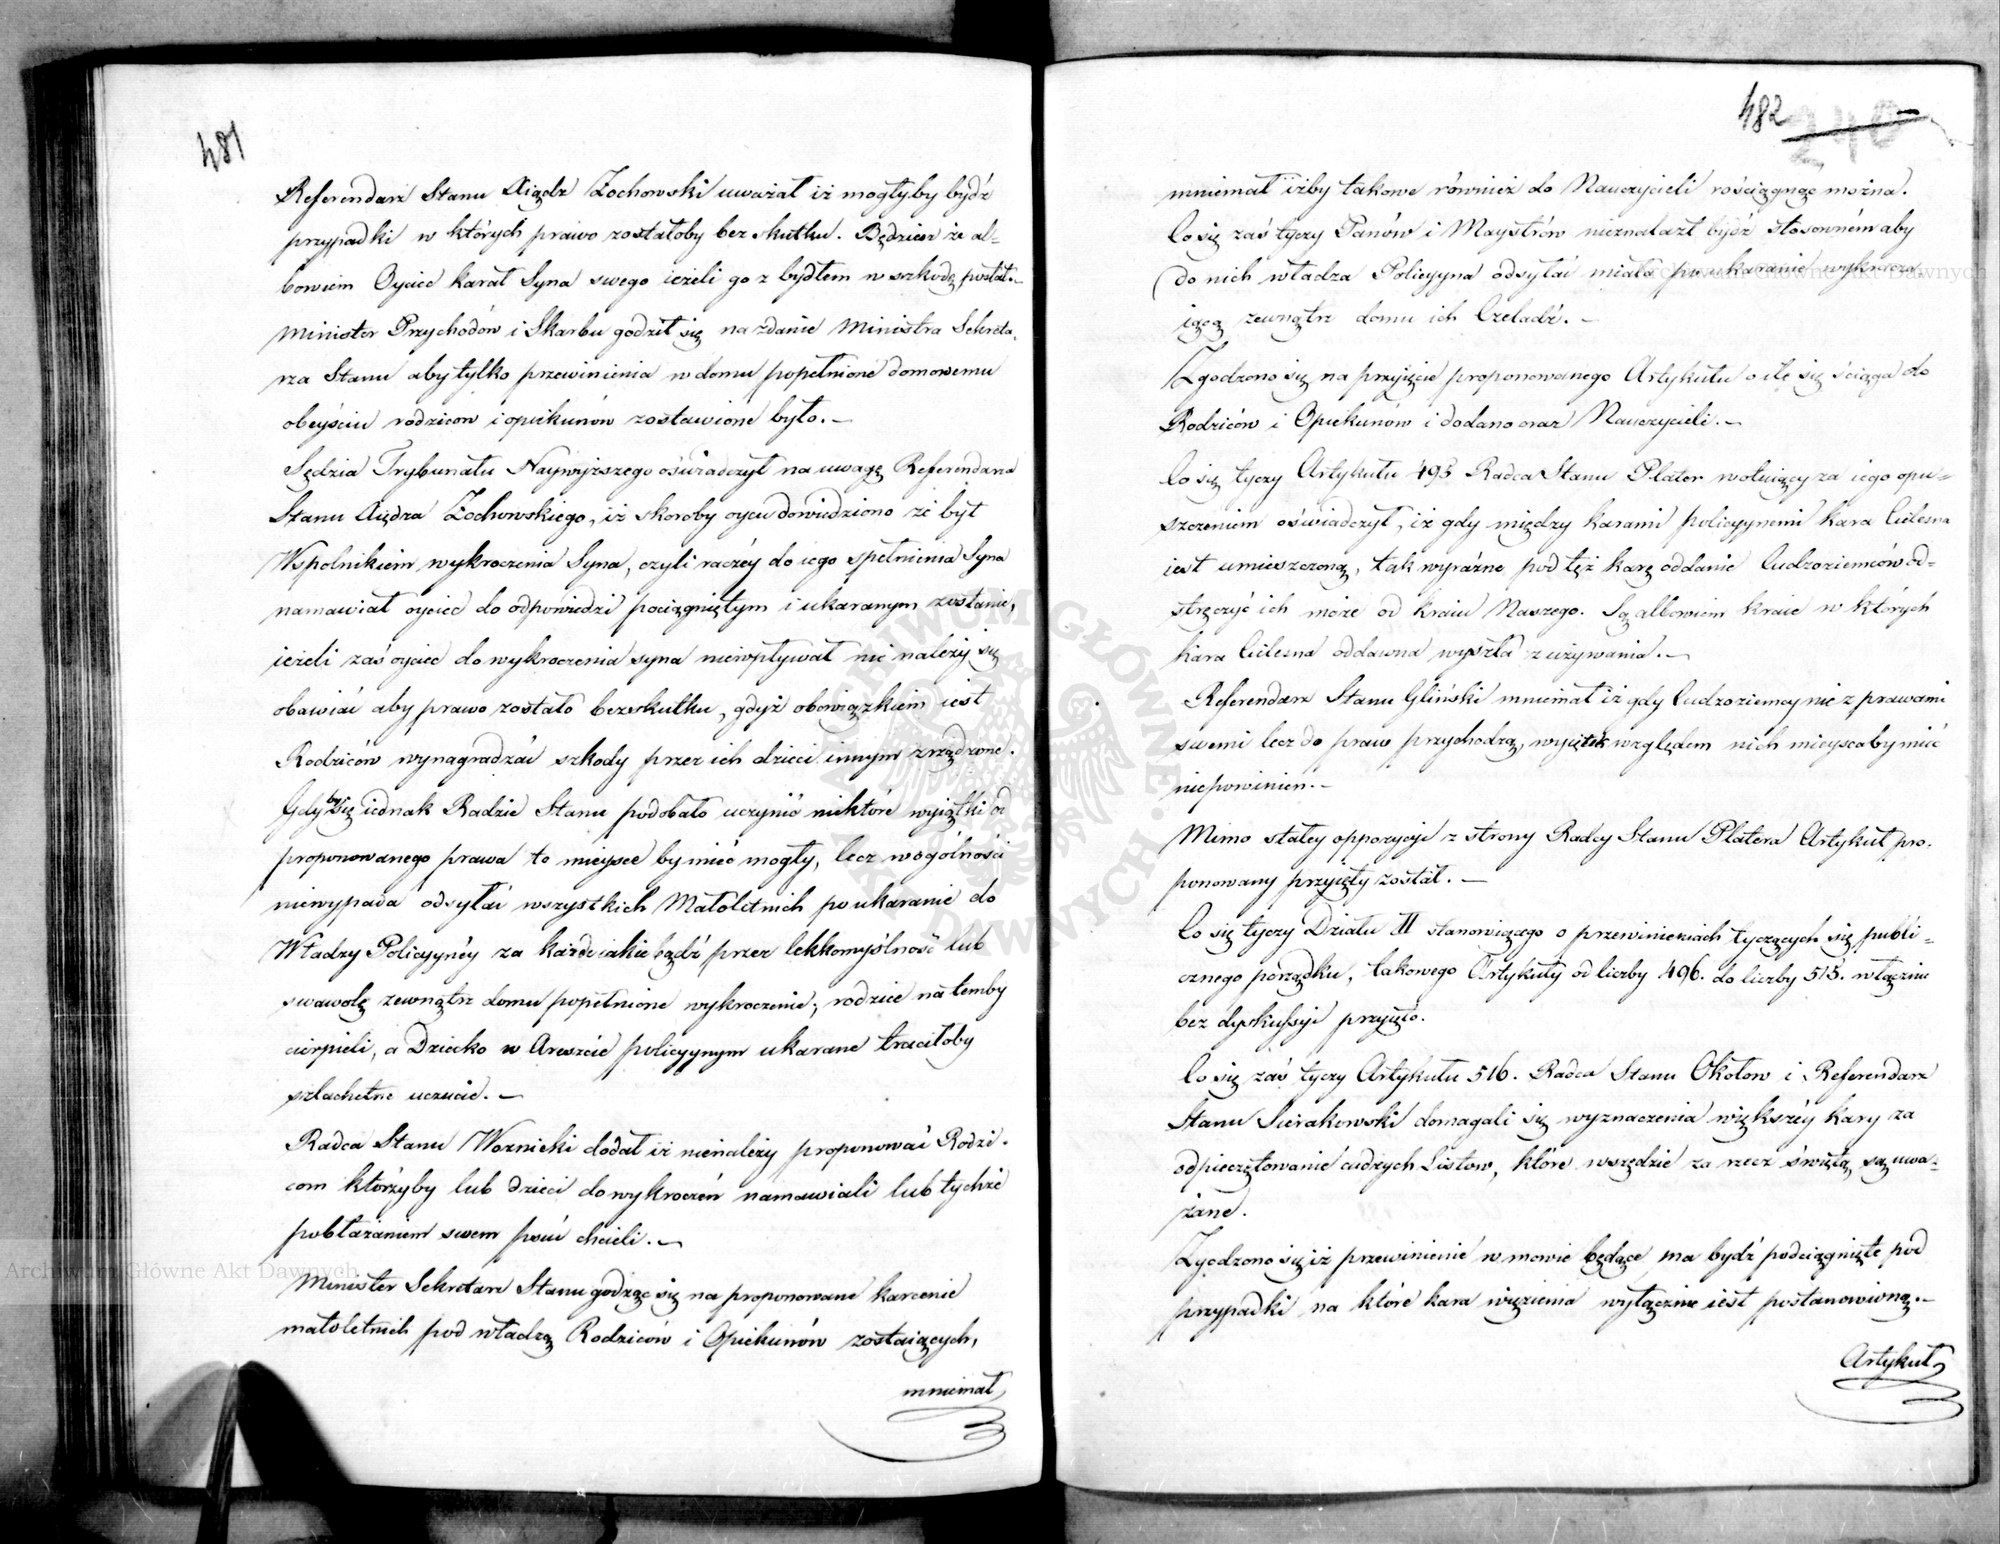 481
Referendarz Stanu Xiądz Zochowski uważał iż mogłyby bydź
przypadki w których prawo zostałoby bez skutku. Będzież że al-
bowiem Oyciec karał Syna swego ieżeli go z bydłem w szkodę posłał.
Minister Przychodów i Skarbu godził się na zdanie Ministra Sekreta-
rza Stanu aby tylko przewinienia w domu popełnione domowemu
obeyściu rodzicow i opiekunów zostawione było.
Sędzia Trybunału Naywyższego oświadczył na uwagę Referendarza
Stanu Xiędza Zochowskiego, iż skoroby oycu dowiedziono że był
Wspolnikiem wykroczenia Syna, czyli raczéy do iego spełnienia Syna
namawiał oyciec do odpowiedzi pociągniętym i ukaranym zostanie,
ieżeli zaś oyciec do wykroczenia syna niewpływał nie należy się
obawiać aby prawo zostało bezskutku, gdyż obowiązkiem iest
Rodziców wynagradzać szkody przez ich dzieci innym zrządzone.
Gdyby się iednak Radzie Stanu podobało uczynić niektóre wyiątki od
proponowanego prawa to mieysce by mieć mogły, lecz wogólności
niewypada odsyłać wszystkich Małoletnich po ukaranie do
Władzy Policyynéy za każde iakie bądź przez lekkomyślność lub
swawolę zewnątrz domu popełnione wykroczenie, rodzice na temby
cierpieli, a Dziecko w Areszcie policyynym ukarane traciłoby
szlachetne uczucie.
Radca Stanu Woznicki dodał iż nienależy proponować Rodzi-
com którzyby lub dzieci do wykroczeń namawiali lub tychże
pobłażaniem swem psuć chcieli.
Minister Sekretarz Stanu godząc się na proponowane karcenie
małoletnich pod władzą Rodziców i Opiekunów zostaiących,
mniemał
482
240
mniemał iżby takowe również do Nauczycieli rościągnąć można.
Co się zaś tyczy Panów i Maystrów nieznalazł bydź stosowném aby
do nich władza Policyyna odsyłać miała po ukaranie wykracza-
iącą zewnątrz domu ich Czeladź.
Zgodzono się na przyięcie proponowanego Artykułu o ile się ściąga do
Rodziców i Opiekunów i dodano oraz Nauczycieli.
Co się tyczy Artykułu 495 Radca Stanu Plater wotuiący za iego opu-
szczeniem oświadczył, iż gdy między karami policyynemi kara Cielesna
iest umieszczoną, tak wyraźne pod tęż karę oddanie Cudzoziemców od-
stręczyć ich może od kraiu Naszego. Są albowiem kraie w których
kara Cielesna oddawna wyszła z używania.
Referendarz Stanu Gliński mniemał iż gdy Cudzoziemcy nie z prawami
swemi lecz do praw przychodzą, wyiątek względem nich mieysca by mieć
niepowinien.
Mimo stałey oppozycyi z strony Radcy Stanu Platera Artykuł pro-
ponowany przyięty został.
Co się tyczy Działu II stanowiącego o przewinieniach tyczących się publi-
cznego porządku, takowego Artykuły od liczby 496. do liczby 515. włącznie
bez dyskussyi przyięto.
Co się zaś tyczy Artykułu 516. Radca Stanu Okołow i Referendarz
Stanu Sierakowski domagali się wyznaczenia większéy kary za
odpieczętowanie cudzych Listow, które wszędzie za rzecz świętą są uwa-
żane.
Zgodzono się iż przewinienie w mowie będące ma bydź podciągnięte pod
przypadki na które kara więzienia wyłącznie iest postanowioną.
Artykuł
Archiwum Główne Akt Dawnych